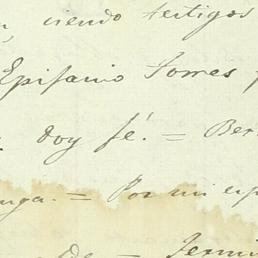 siendo testigos
Epifanio Torres
doy fé. = Ber
= Por mi esp
De = Fermi